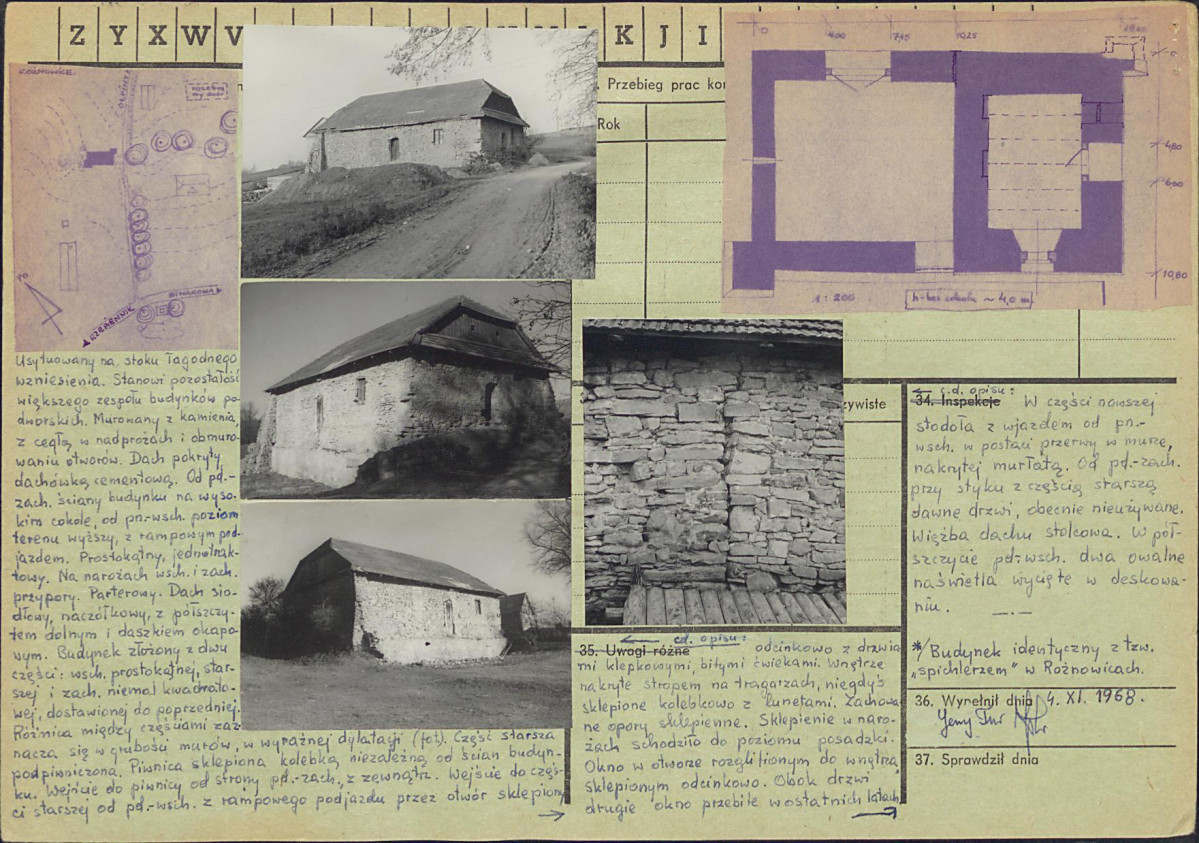 Z Y X W V
K J I
Przebieg prac kon
Rok
zywiste
ROŻNOWICE
BINAROWA
RZEPIENNIK
0
4,00
7,45
10,25
4,80
6,00
10,80
1:200
h-bez cokołu ~ 4,0 m
Usytuowany na stoku łagodnego
wzniesienia. Stanowi pozostałość
większego zespołu budynków po-
dworskich. Murowany z kamienia,
z cegłą w nadprożach i obmuro-
waniu otworów. Dach pokryty
dachówką cementową. Od pd.-
zach. ściany budynku na wyso-
kim cokole, od pn.-wsch. poziom
terenu wyższy, z rampowym pod-
jazdem. Prostokątny, jednotrak-
towy. Na narożach wsch. i zach.
przypory. Parterowy. Dach sio-
dłowy, naczółkowy, z półszczy-
tem dolnym i daszkiem okapo-
wym. Budynek złożony z dwu
części: wsch. prostokątnej, star-
szej i zach. niemal kwadrato-
wej, dostawionej do poprzedniej.
Różnica między częściami zaz-
nacza się w grubości murów, w wyraźnej dylatacji (fot). Część starsza
podpiwniczona. Piwnica sklepiona kolebką niezależną od ścian budyn-
ku. Wejście do piwnicy od strony pd.-zach., z zewnątrz. Wejście do częś-
ci starszej od pd.-wsch. z rampowego podjazdu przez otwór sklepiony
35. Uwagi różne
cd. opisu:
odcinkowo z drzwia-
mi klepkowymi, bitymi ćwiekami. Wnętrze
nakryte stropem na tragarzach, niegdyś
sklepione kolebkowo z lunetami. Zachowa-
ne opory sklepienne. Sklepienie w naro-
żach schodziło do poziomu posadzki.
Okno w otworze rozglifionym do wnętrza,
sklepionym odcinkowo. Obok drzwi
drugie okno przebite w ostatnich latach
c.d. opisu:
34. Inspekcje W części nowszej
stodoła z wjazdem od pn.-
wsch. w postaci przerwy w murze,
nakrytej murłatą. Od pd.-zach.
przy styku z częścią starszą
dawne drzwi, obecnie nieużywane.
Więźba dachu stolcowa. W pół-
szczycie pd.-wsch. dwa owalne
naświetla wycięte w deskowa-
niu.
*/ Budynek identyczny z tzw.
„spichlerzem" w Rożnowicach.
36. Wypełnił dnia 4. XI. 1968.
37. Sprawdził dnia